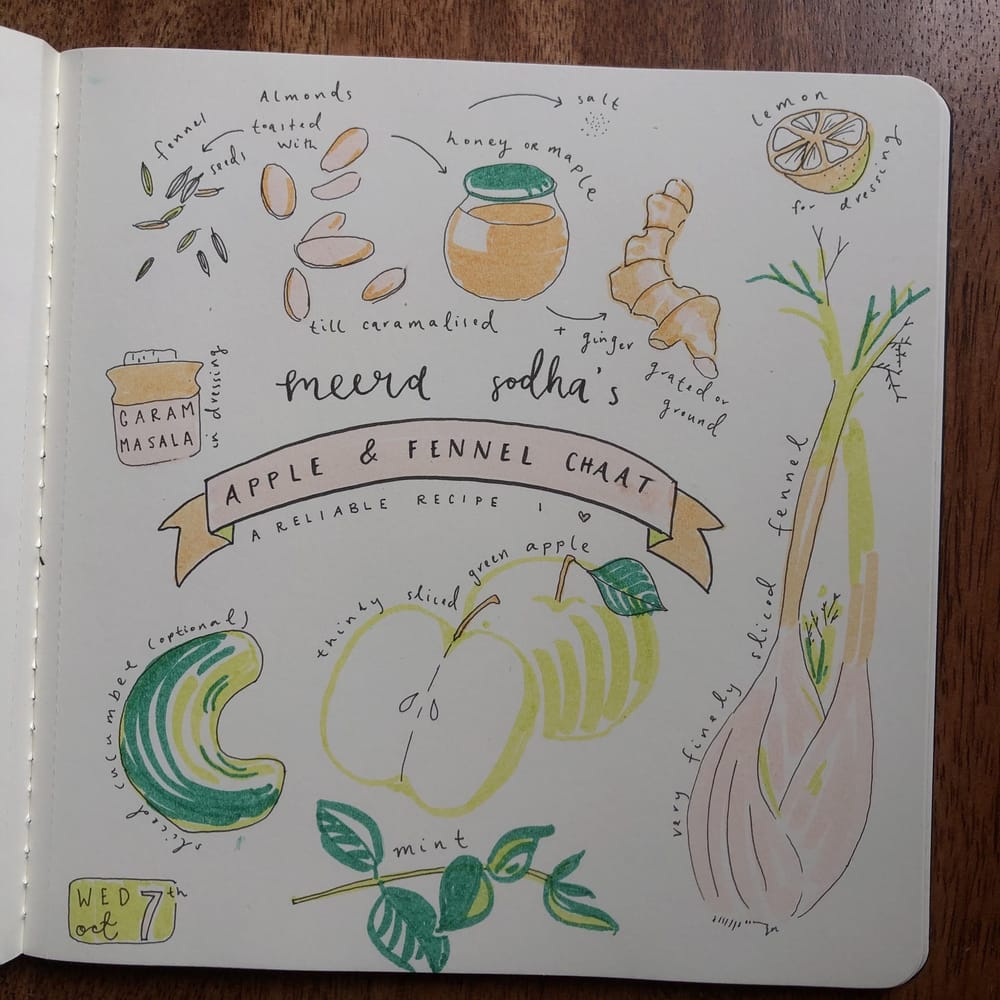 Almonds
toasted
with
fennel
seeds
honey or maple
salt
till caramalised
+ ginger
grated or
ground
lemon
for dressing
GARAM
MASALA
in dressing
meera sodha's
APPLE & FENNEL CHAAT
A RELIABLE RECIPE I ♡
thinly sliced green apple
very finely sliced fennel
sliced cucumber (optional)
mint
WED
oct 7th